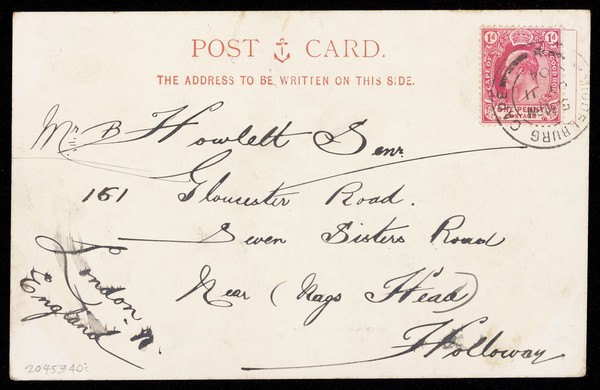 POST CARD.
THE ADDRESS TO BE WRITTEN ON THIS SIDE.
1d 1d
CAPE OF GOOD HOPE
ONE PENNY
POSTAGE
Mr B Howlett Senr
161 Gloucester Road.
Seven Sisters Road
Near (Nags Head)
Holloway
London. N.
England
2045940i